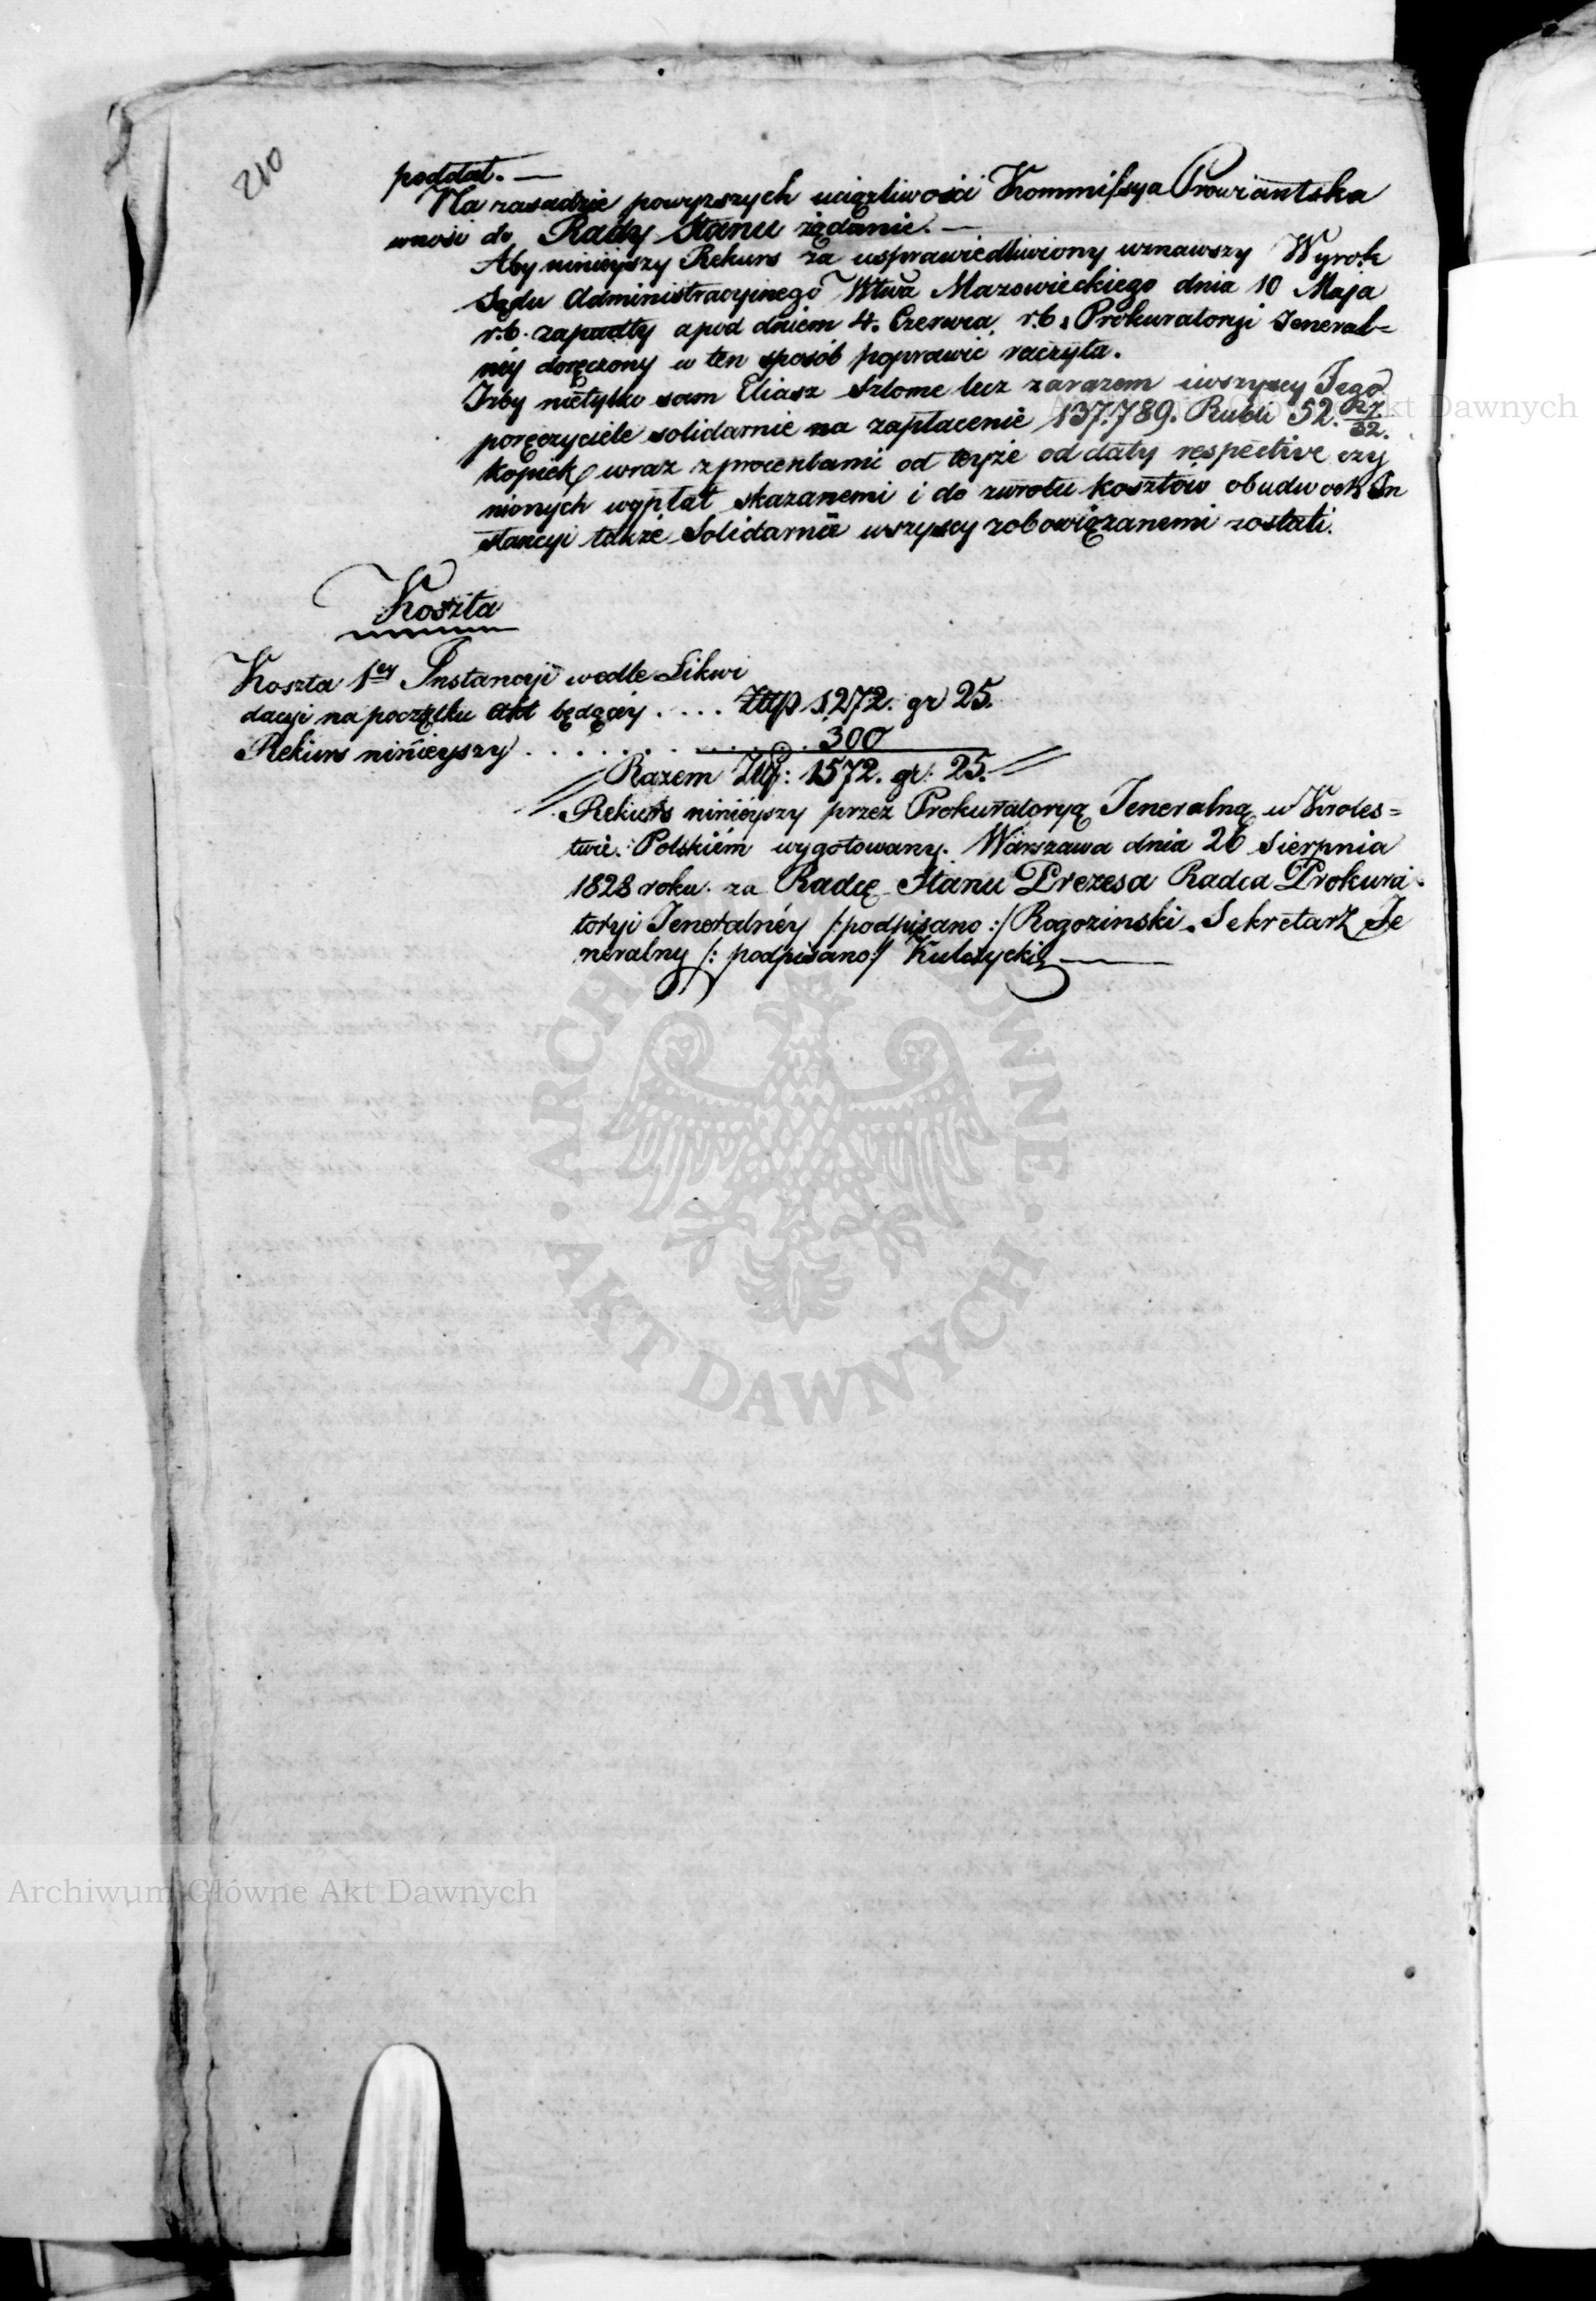 210
poddał. —
Na zasadzie powyższych uciążliwości Kommissya Prowiantska
wnosi do Rady Stanu żądanie. —
Aby ninieyszy Rekurs za usprawiedliwiony uznawszy Wyrok
Sądu Administracyinego Wtwa Mazowieckiego dnia 10 Maja
r.b. zapadły a pod dniem 4. Czerwca r.b. Prokuratoryi Jeneral=
néy doręczony w ten sposób poprawić raczyła.
Iżby nietylko sam Eliasz Szlome lecz zarazem i wszyscy Jego
poręczyciele solidarnie na zapłacenie 137.789. Rubli 52. 27/32.
kopiek wraz z procentami od teyże od daty respective czy
nionych wypłat skazanemi i do zwrotu kosztów obudwoch In
stancyi także Solidarnie wszyscy zobowiązanemi zostali.
Koszta
Koszta 1ey Instancyi wedle Likwi
dacyi na początku akt będącéy . . . . Złłp 1272. gr 25.
Rekurs ninieyszy . . . . . . . . . . . . 300
Razem Złłp: 1572. gr: 25.
Rekurs ninieyszy przez Prokuratoryą Jeneralną w Króles=
twie Polskiém wygotowany. Warszawa dnia 26 Sierpnia
1828 roku. za Radcę Stanu Prezesa Radca Prokura
toryi Jeneralnéy /: podpisano :/ Rogozinski. Sekretarz Je
neralny /: podpisano :/ Kulczycki —
Archiwum Główne Akt Dawnych
ARCHIWUM GŁÓWNE · AKT DAWNYCH ·
Archiwum Główne Akt Dawnych